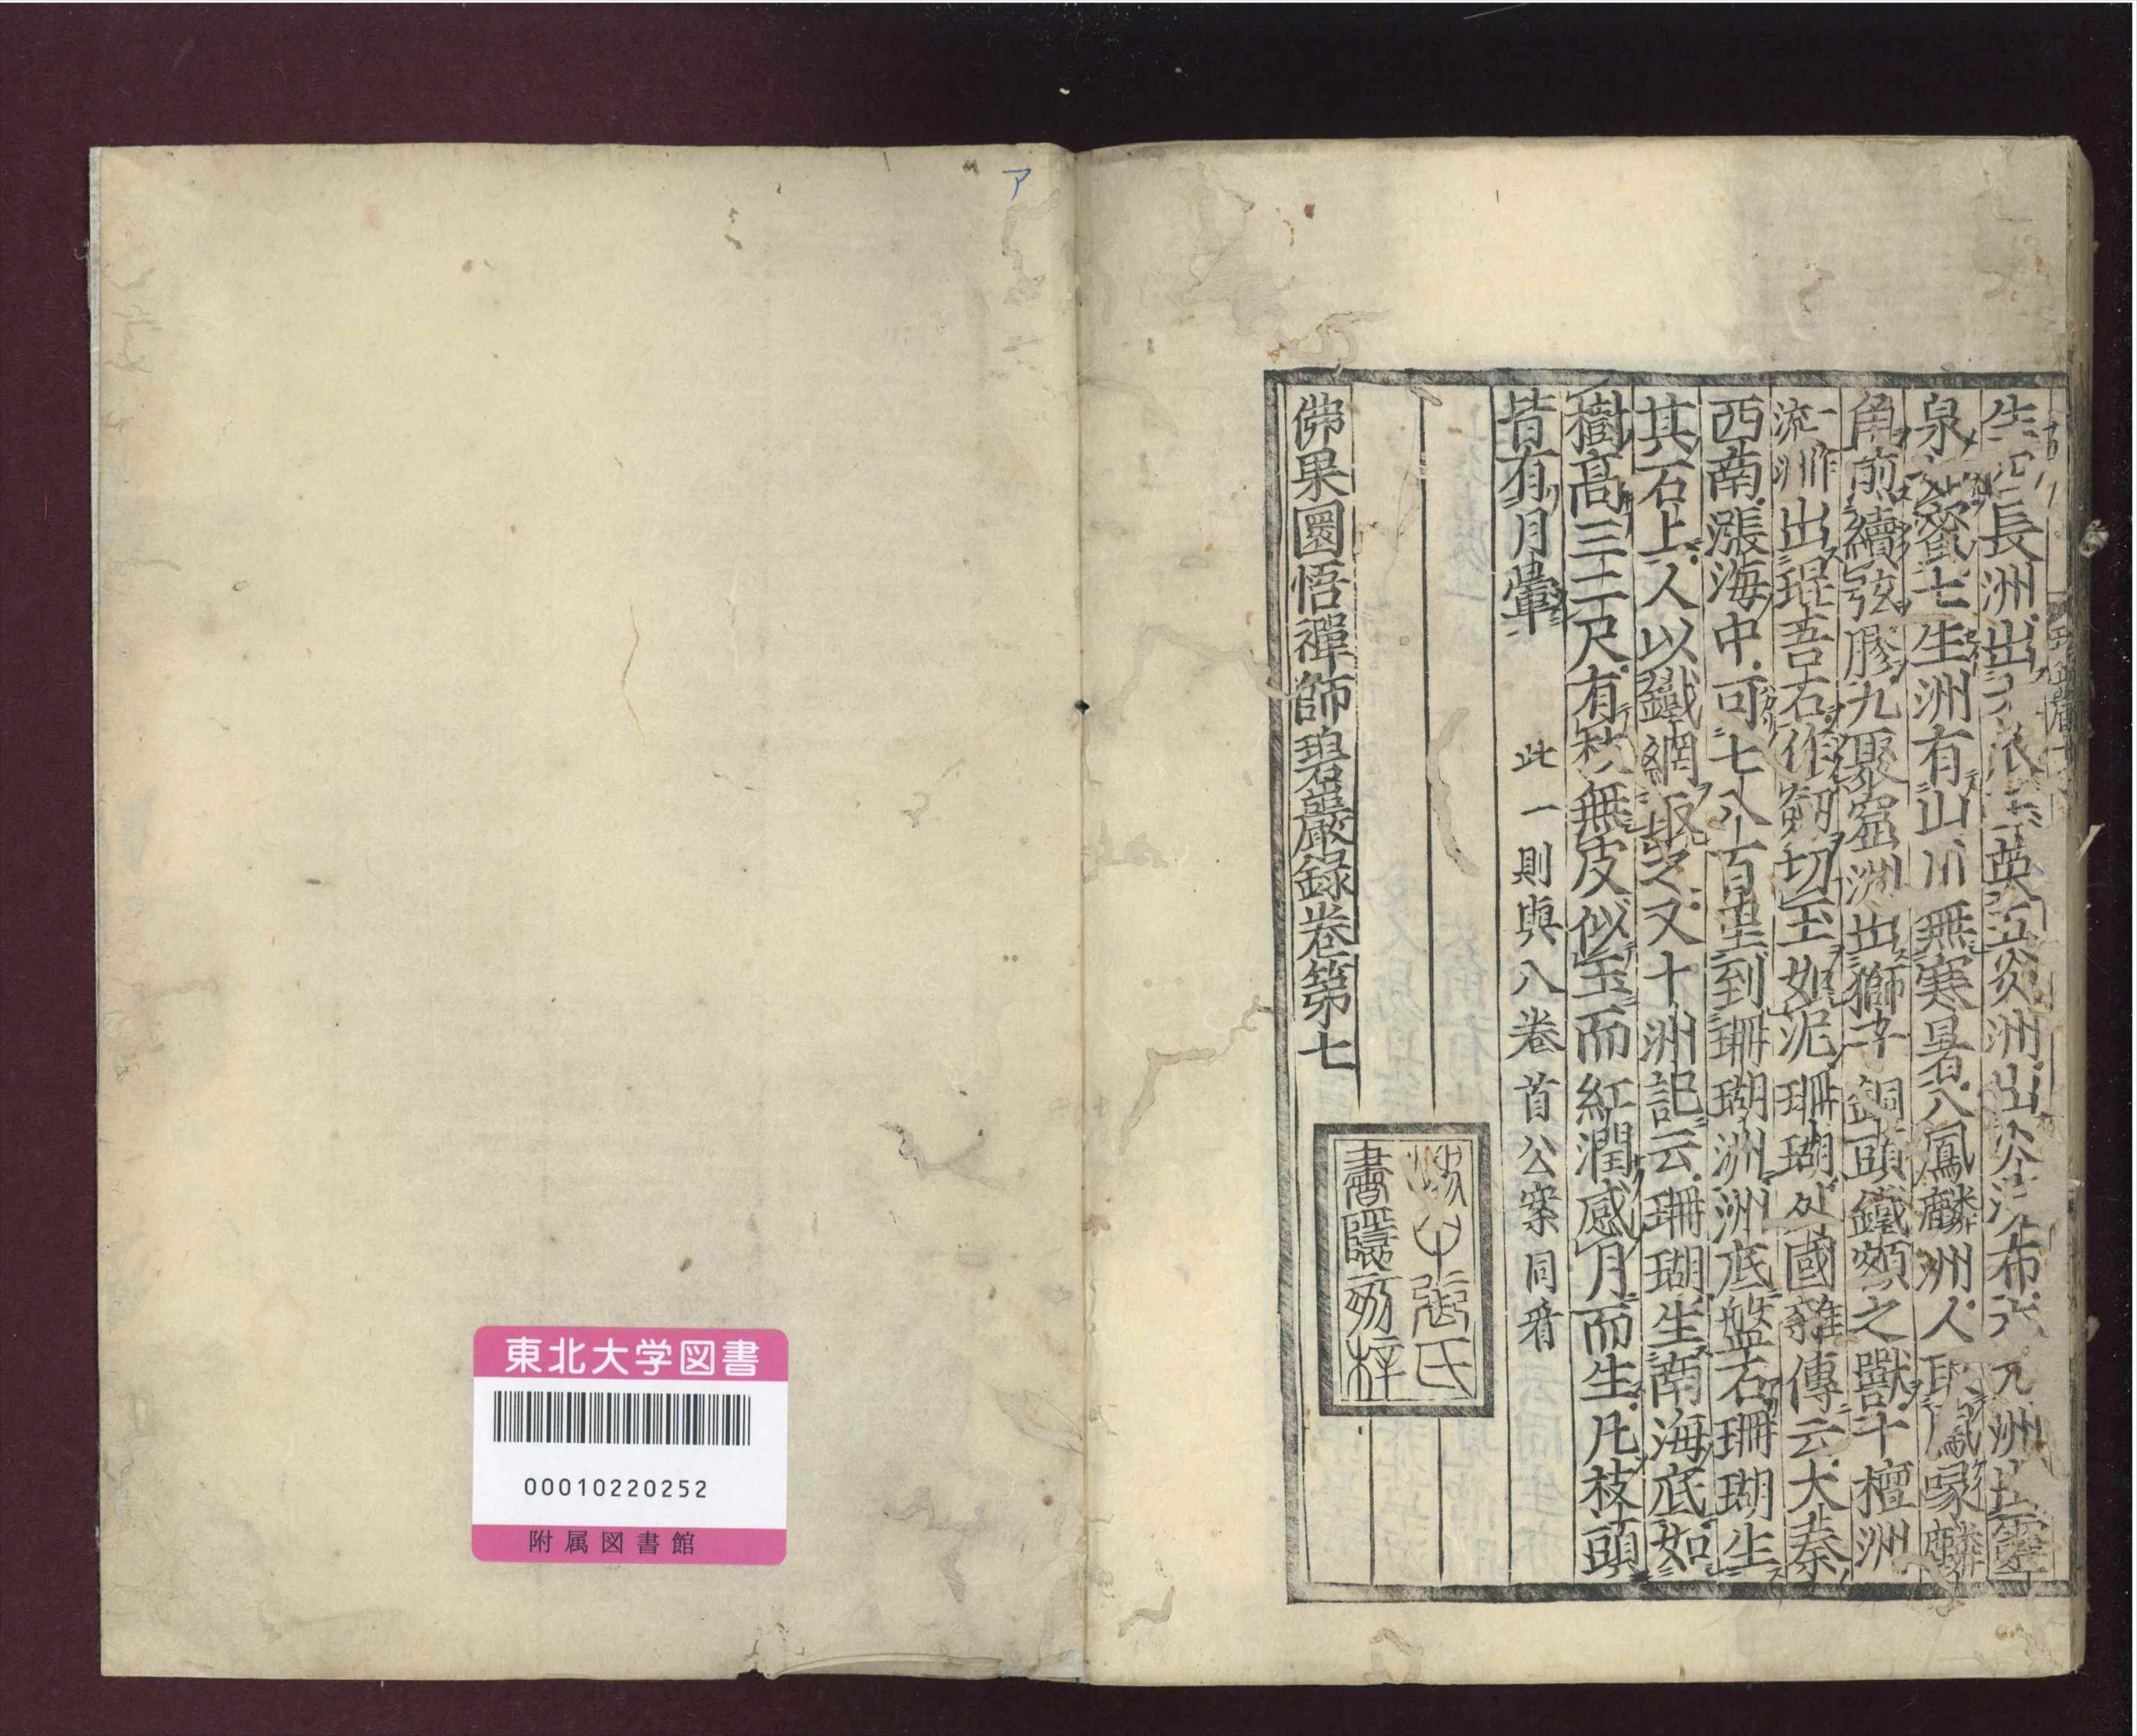 生 長洲出 英五炎洲出火 布六元洲出靈
泉 蜜七生洲有山川無寒暑八鳳麟洲人取鳳喙麟
角煎續弦膠九聚窟洲出獅子銅頭鐵額之獸十檀洲
一作流洲出琨吾石作劒切玉如泥珊瑚外國雜傳云大秦
西南漲海中可七八百里到珊瑚洲洲底盤石珊瑚生
其石上人以鐵網取之又十洲記云珊瑚生南海底如
樹高三二尺有枝無皮似玉而紅潤感月而生凡枝頭
皆有月暈 此一則與八卷首公案同看
佛果圜悟禪師碧巖錄卷第七
中張氏
書隱刻梓
ア
東北大学図書
00010220252
附属図書館